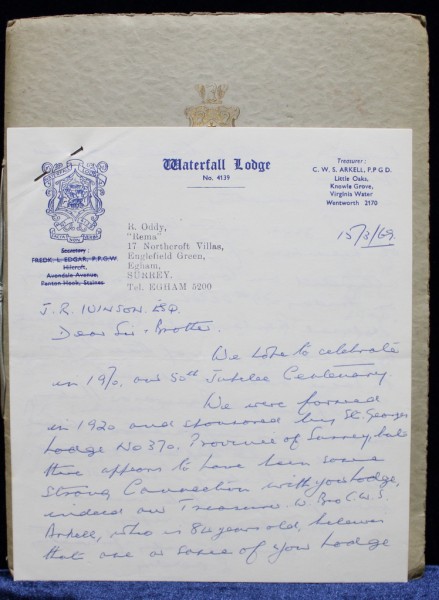 Waterfall Lodge
No. 4139
Treasurer:
C. W. S. ARKELL, P.P.G.D.
Little Oaks,
Knowle Grove,
Virginia Water
Wentworth 2170
Secretary:
FREDK. L. EDGAR, P.P.G.W.
Hilcroft,
Avondale Avenue,
Fenton Hook, Staines
R. Oddy,
"Rema"
17 Northcroft Villas,
Englefield Green,
Egham,
SURREY.
Tel. EGHAM 5200
15/3/69.
J. R. IVINSON. ESQ.
Dear Sir & Brother.
We hope to celebrate
in 1970, our 50th Jubilee Centenary
We were formed
in 1920 and sponsored by St. Georges
Lodge No 370. Province of Surrey, but
there appears to have been some
strong connection with your Lodge,
indeed our Treasurer. W. Bro C. W. S.
Arkell, who is 84 years old, believes
that one or some of your Lodge